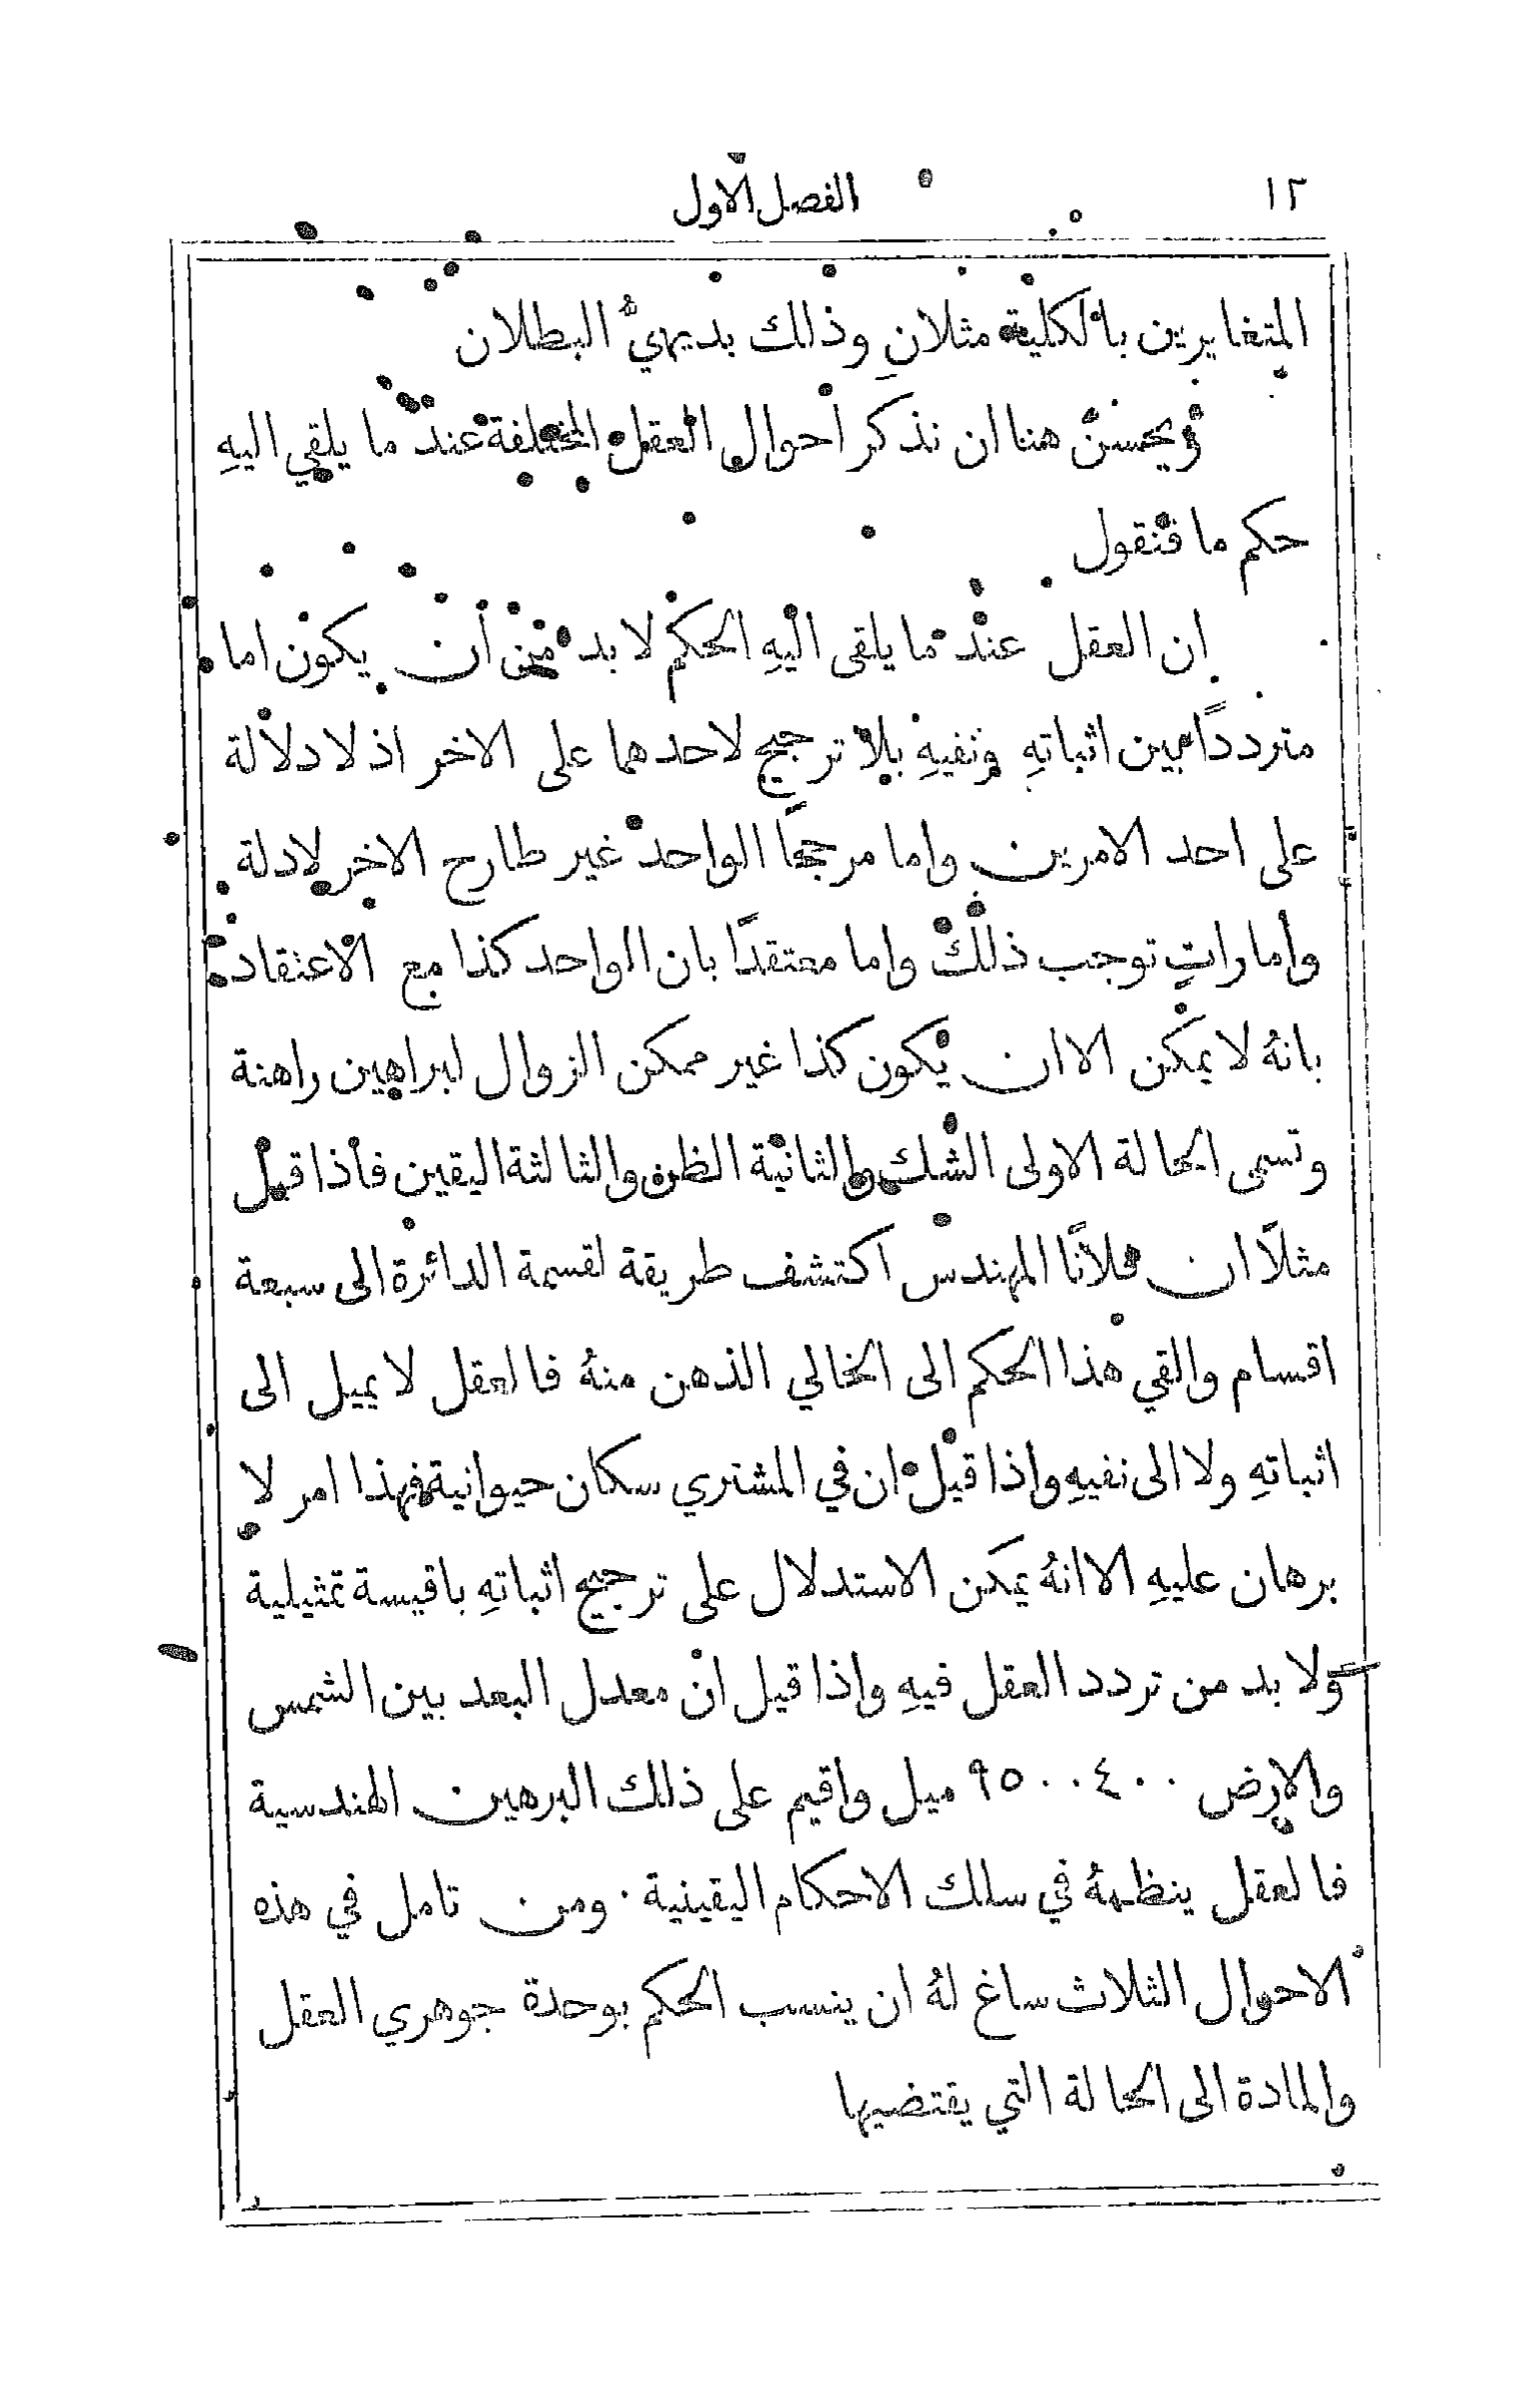 ١٢
الفصل الاول
المتغايرين بالكلية مثلانِ وذلك بديهيٌّ البطلان
ويحسن هنا ان نذكر احوال العقل المختلفة عند ما يلقي اليهِ
حكم ما فنقول
ان العقل عند ما يلقى اليهِ الحكم لا بد من أن يكون اما
مترددًا بين اثباتهِ ونفيهِ بلا ترجيح لاحدهما على الاخر اذ لا دلالة
على احد الامرين واما مرجحًا الواحد غير طارح الاخر لادلة
وامارات توجب ذلك واما معتقدًا بان الواحد كذا مع الاعتقاد
بانهُ لا يمكن الا ان يكون كذا غير ممكن الزوال لبراهين راهنة
وتسمى الحالة الاولى الشك والثانية الظن والثالثة اليقين فاذا قيل
مثلًا ان فلانًا المهندس اكتشف طريقة لقسمة الدائرة الى سبعة
اقسام والقي هذا الحكم الى الخالي الذهن منهُ فالعقل لا يميل الى
اثباتهِ ولا الى نفيهِ واذا قيل ان في المشتري سكان حيوانية فهذا امر لا
برهان عليهِ الا انهُ يمكن الاستدلال على ترجيح اثباتهِ باقيسة تمثيلية
ولا بد من تردد العقل فيهِ واذا قيل ان معدل البعد بين الشمس
والارض ٩٥٠٠٤٠٠ ميل واقيم على ذلك البرهين الهندسية
فالعقل ينظمهُ في سلك الاحكام اليقينية · ومن تامل في هذه
الاحوال الثلاث ساغ لهُ ان ينسب الحكم بوحدة جوهري العقل
والمادة الى الحالة التي يقتضيها